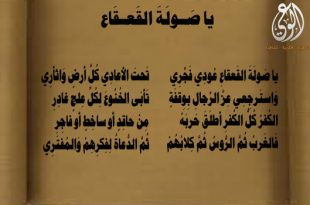 الوعي
يا صَـولَةَ القَعـقَاع
يا صَولةَ القَعقاعِ عُودي فَجِّري تَحتَ الأعادي كُلَّ أرضٍ وَاثأري
واسترجعي عِزَّ الرِّجالِ بِوَقفَةٍ تَأبى الخُنُوعَ لكُلِّ عِلجٍ غَادِرِ
الكُفرُ كُلُّ الكُفرِ أطلَقَ حَربَهُ مِن حاقِدٍ أو ساخِطٍ أو فاجِرِ
فالغربُ ثُمَّ الرُّوسُ ثُمَّ كِلابُهُم ثُمَّ الدُّعاةُ لِفِكرِهِم وَالمُفتَرِي